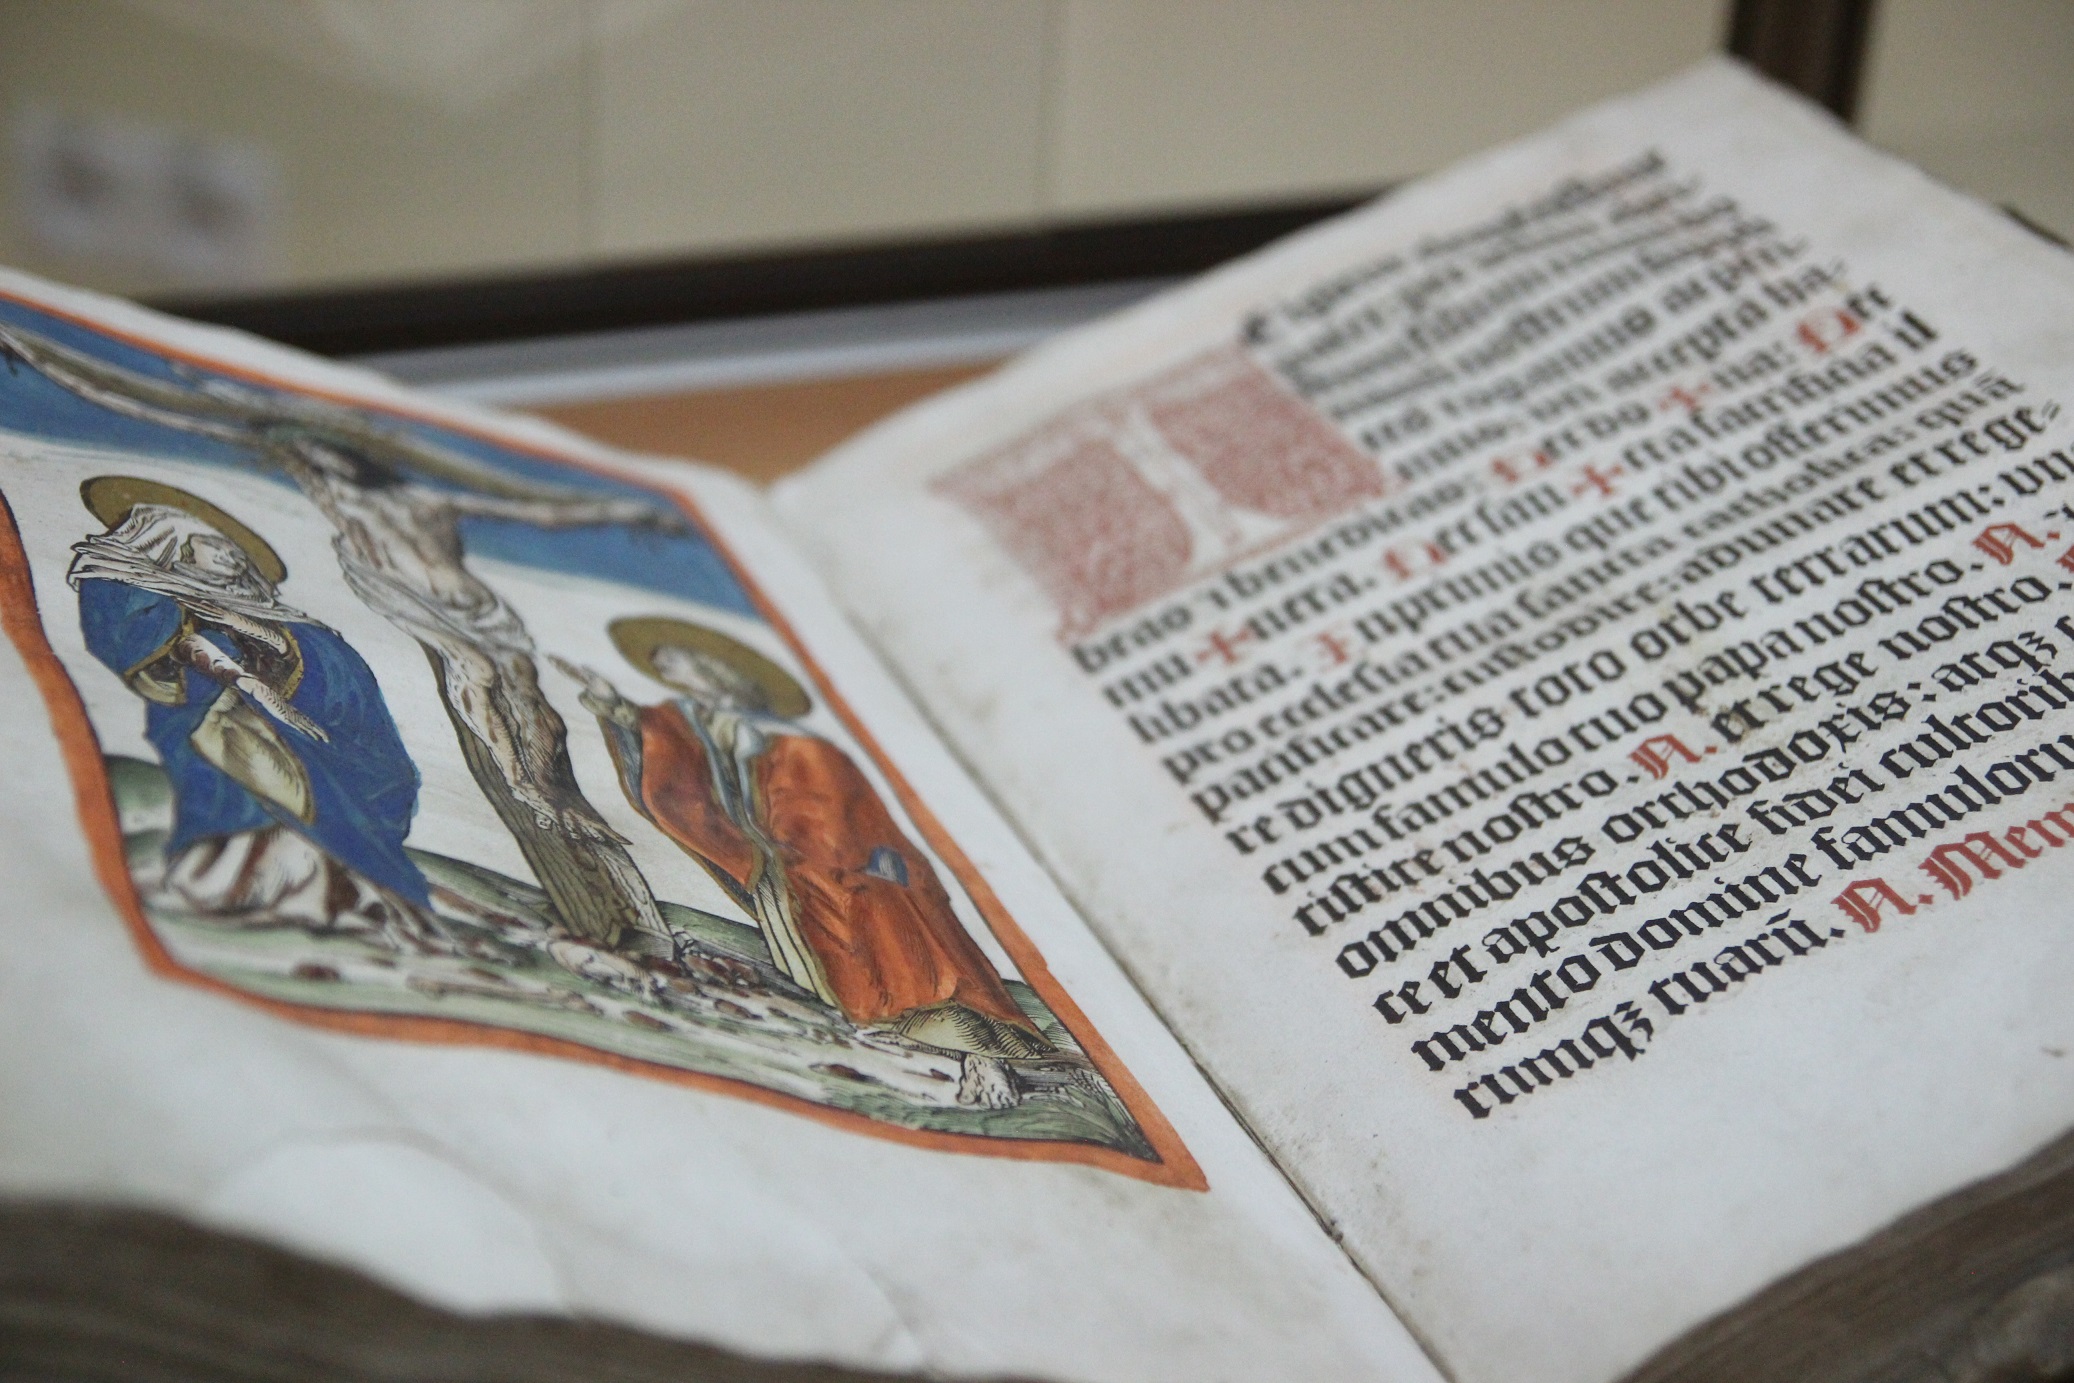 E igitur clementissime
pater: per
um filium tuum
num nostrum supplices
ces rogamus ac peti-
mus: uti accepta ha-
beas ⁊ benedicas: Hec do ✠ na: Hec
mu ✠ nera. Hec san ✠ cta sacrificia il
libata. Inprimis que tibi offerimus
pro ecclesia tua sancta catholica: quā
pacificare: custodire: adunare et rege=
re digneris toto orbe terrarum: un
cum famulo tuo papa nostro. N.
tistite nostro. N. et rege nostro.
omnibus orthodoxis: atqꝫ
ce et apostolice fidei cultorib
mento domine famuloru
rumqꝫ tuarū. N. Mem